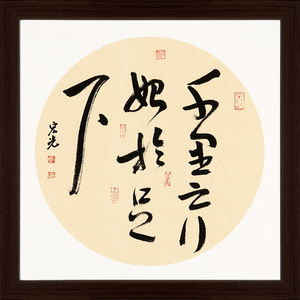 千里之行
始於足
下
宏光